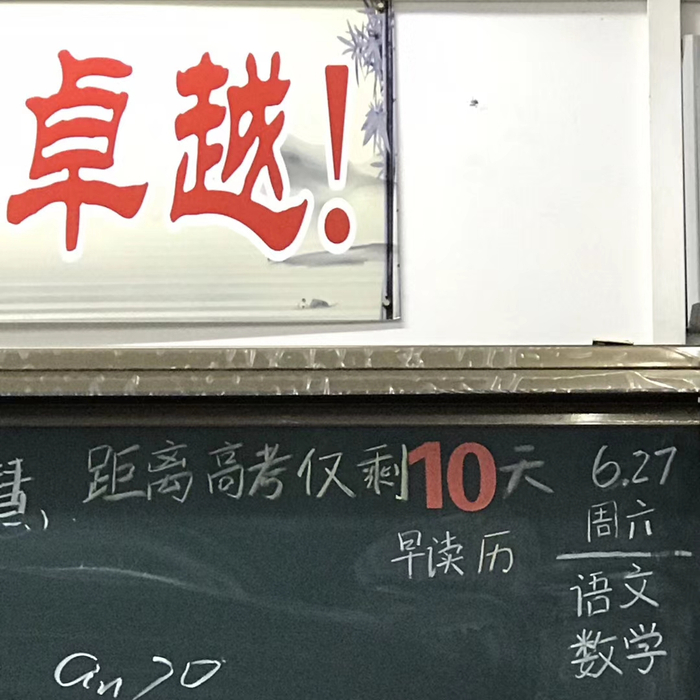 卓越!
距离高考仅剩10天
6.27
周六
早读 历
语文
数学
an>0